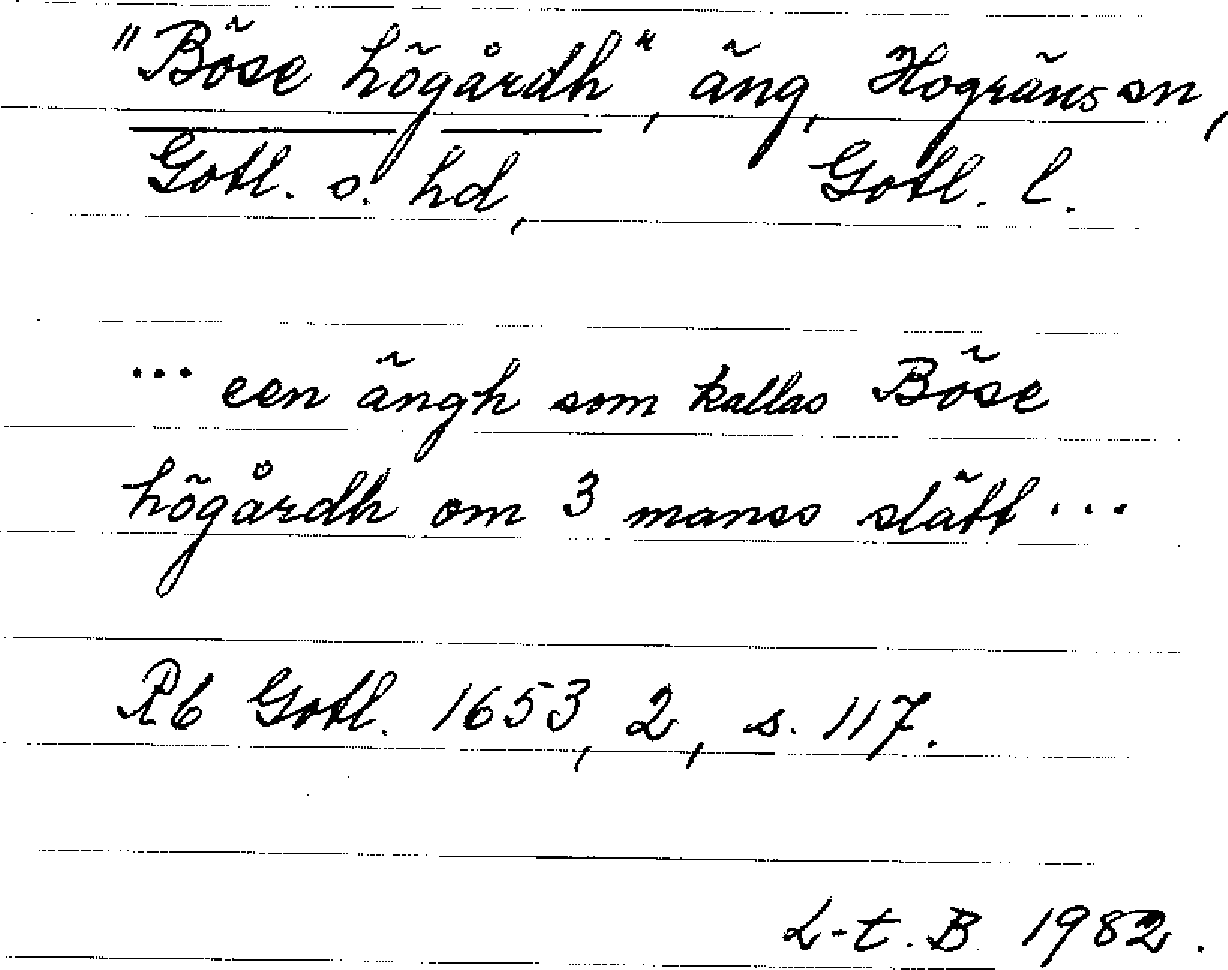 "Böse högårdh", äng, Hogräns sn,
Gotl. s. hd, Gotl. l.
... een ängh som kallas Böse
högårdh om 3 manss slätt ...
Rb Gotl. 1653, 2, s. 117.
L-t. B. 1982.